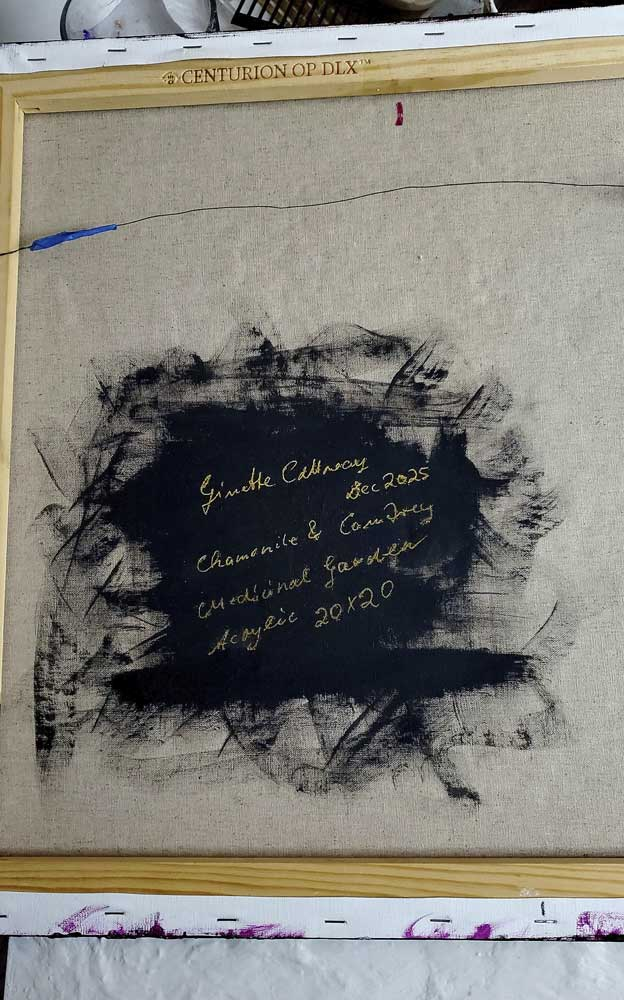 CENTURION OP DLX™
Ginette Callaway
Dec 2025
Chamomile & Comfrey
Medicinal Garden
Acrylic 20x20